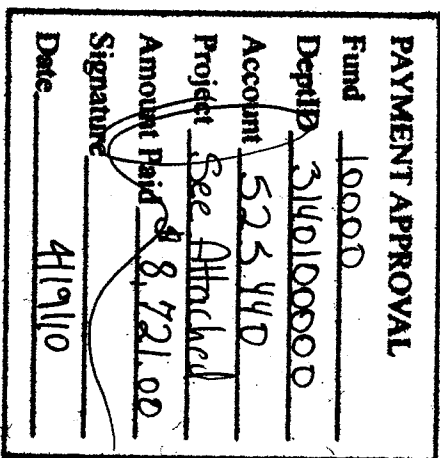 PAYMENT APPROVAL
Fund 10000
DeptID 3140100000
Account 523440
Project See Attached
Amount Paid $ 8,721.00
Signature
Date 4/19/10